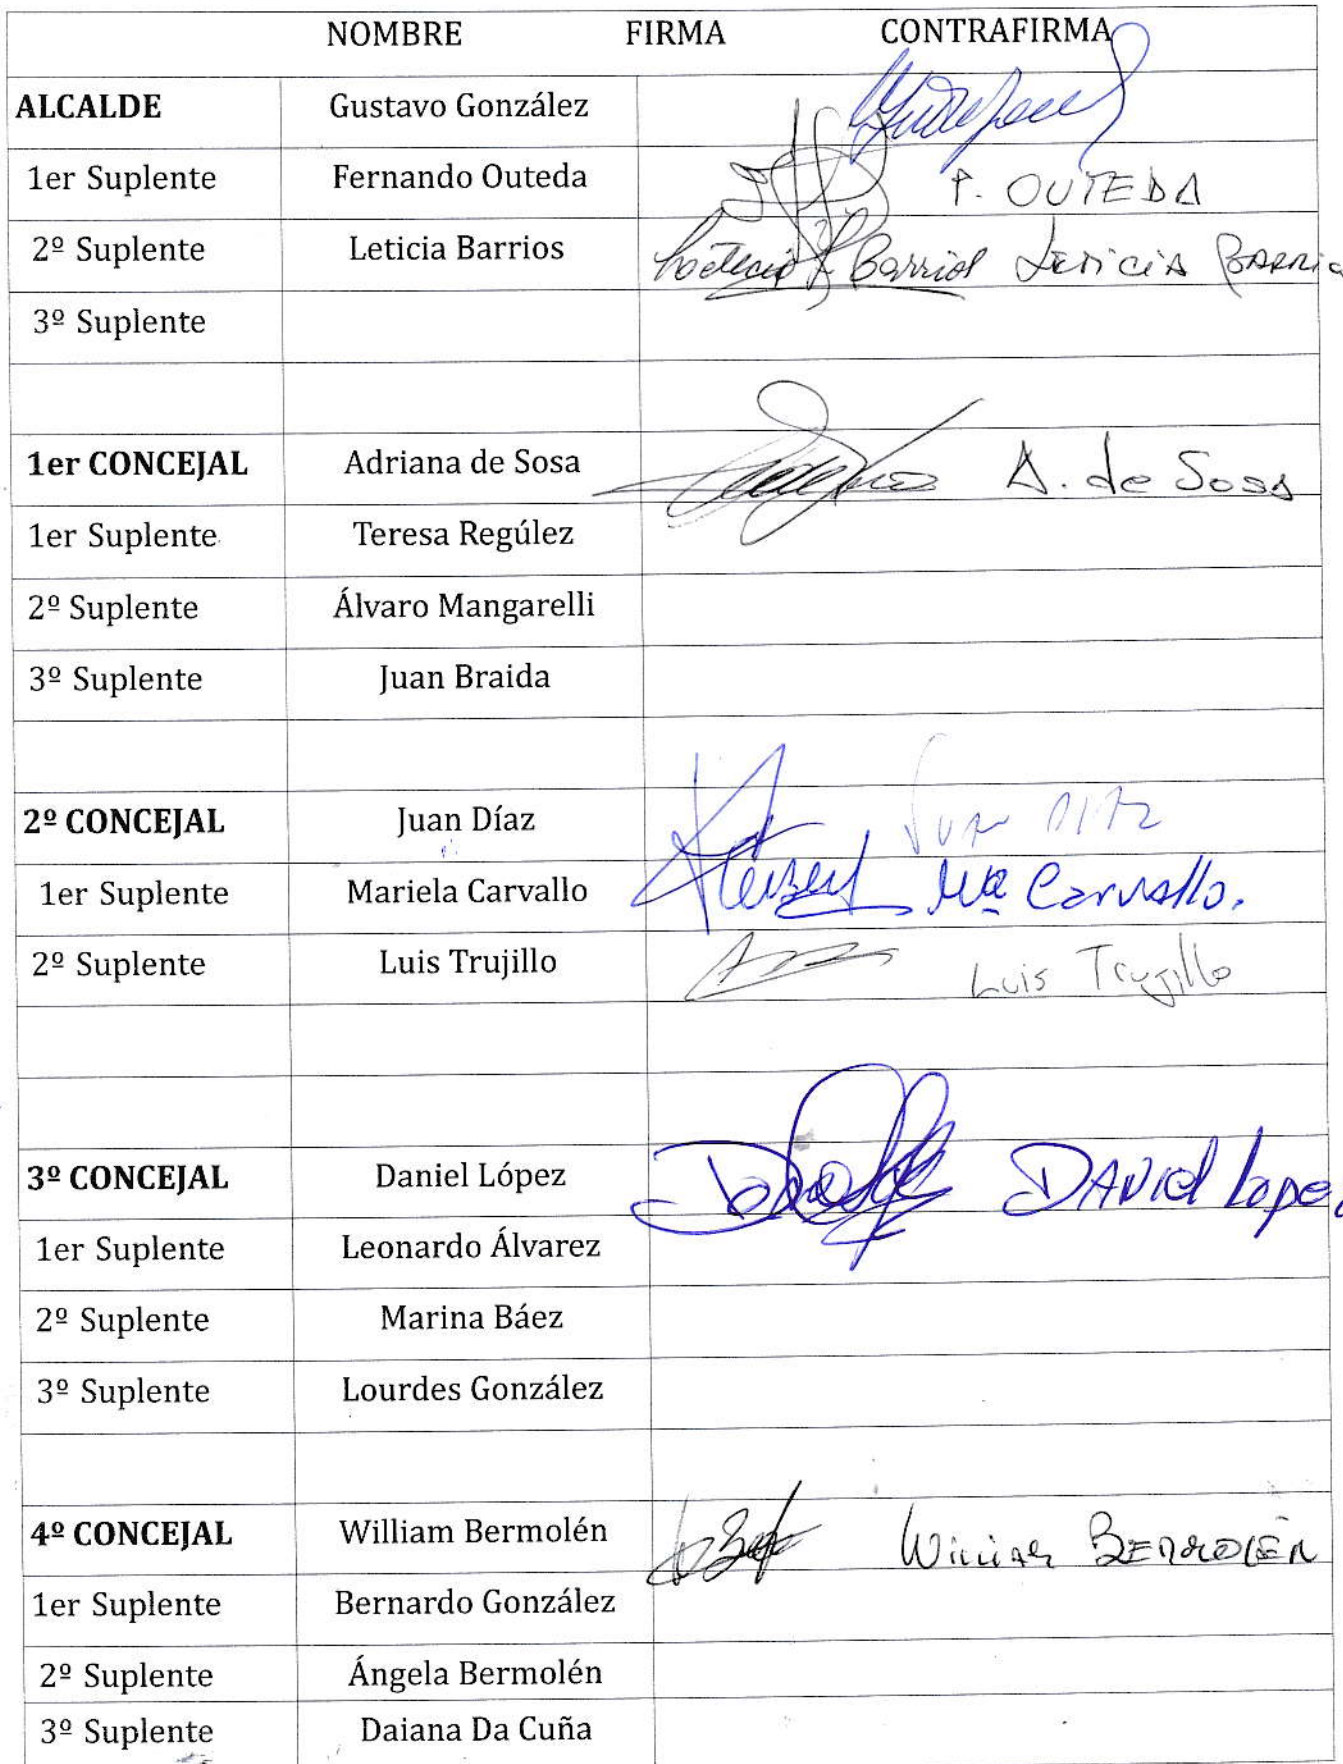 NOMBRE FIRMA CONTRAFIRMA
ALCALDE Gustavo González
1er Suplente Fernando Outeda F. OUTEDA
2º Suplente Leticia Barrios Leticia Barrios LETICIA BARRIO
3º Suplente
1er CONCEJAL Adriana de Sosa A. de Sosa
1er Suplente Teresa Regúlez
2º Suplente Álvaro Mangarelli
3º Suplente Juan Braida
2º CONCEJAL Juan Díaz Juan DIAZ
1er Suplente Mariela Carvallo Mª Carvallo.
2º Suplente Luis Trujillo Luis Trujillo
3º CONCEJAL Daniel López DANIEL Lopez
1er Suplente Leonardo Álvarez
2º Suplente Marina Báez
3º Suplente Lourdes González
4º CONCEJAL William Bermolén William BERMOLÉN
1er Suplente Bernardo González
2º Suplente Ángela Bermolén
3º Suplente Daiana Da Cuña